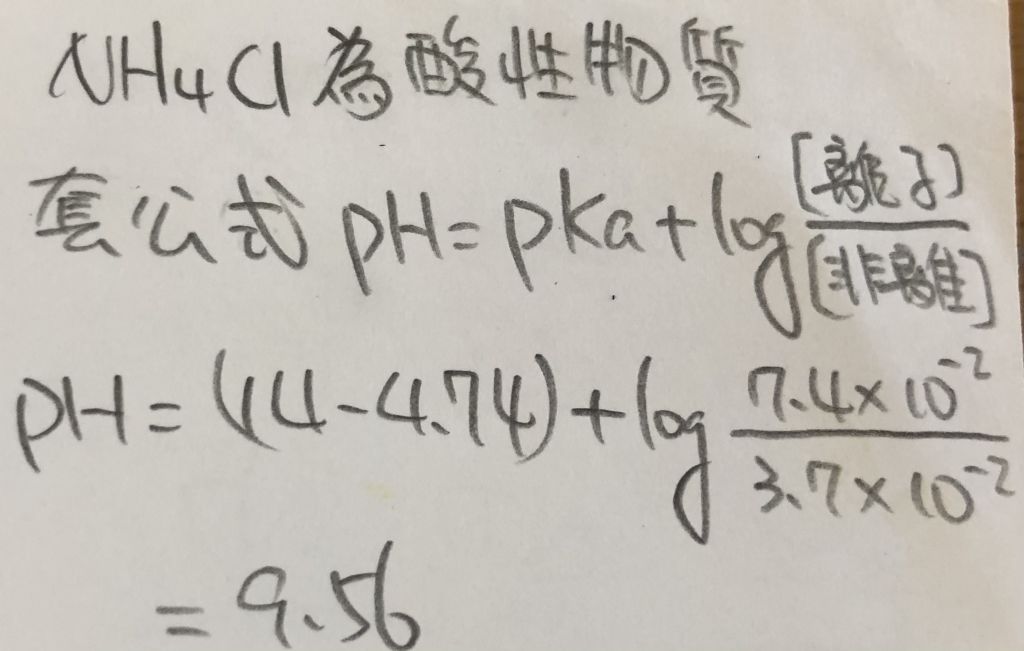 NH4Cl為酸性物質
套公式 pH = pKa + log [離子]/[非離]
pH = (14-4.74) + log 7.4×10⁻²/3.7×10⁻²
= 9.56